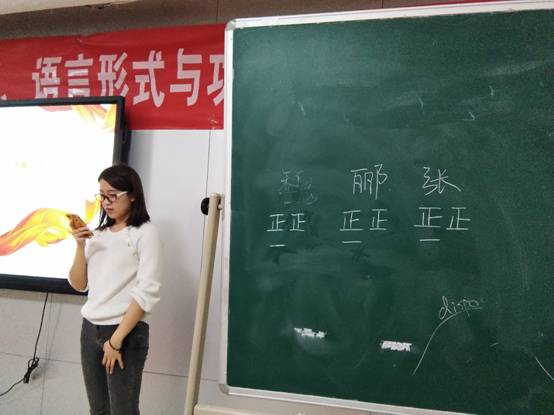 语言形式与功
郦 张
正正 正正 正正
一 一 一
dispo